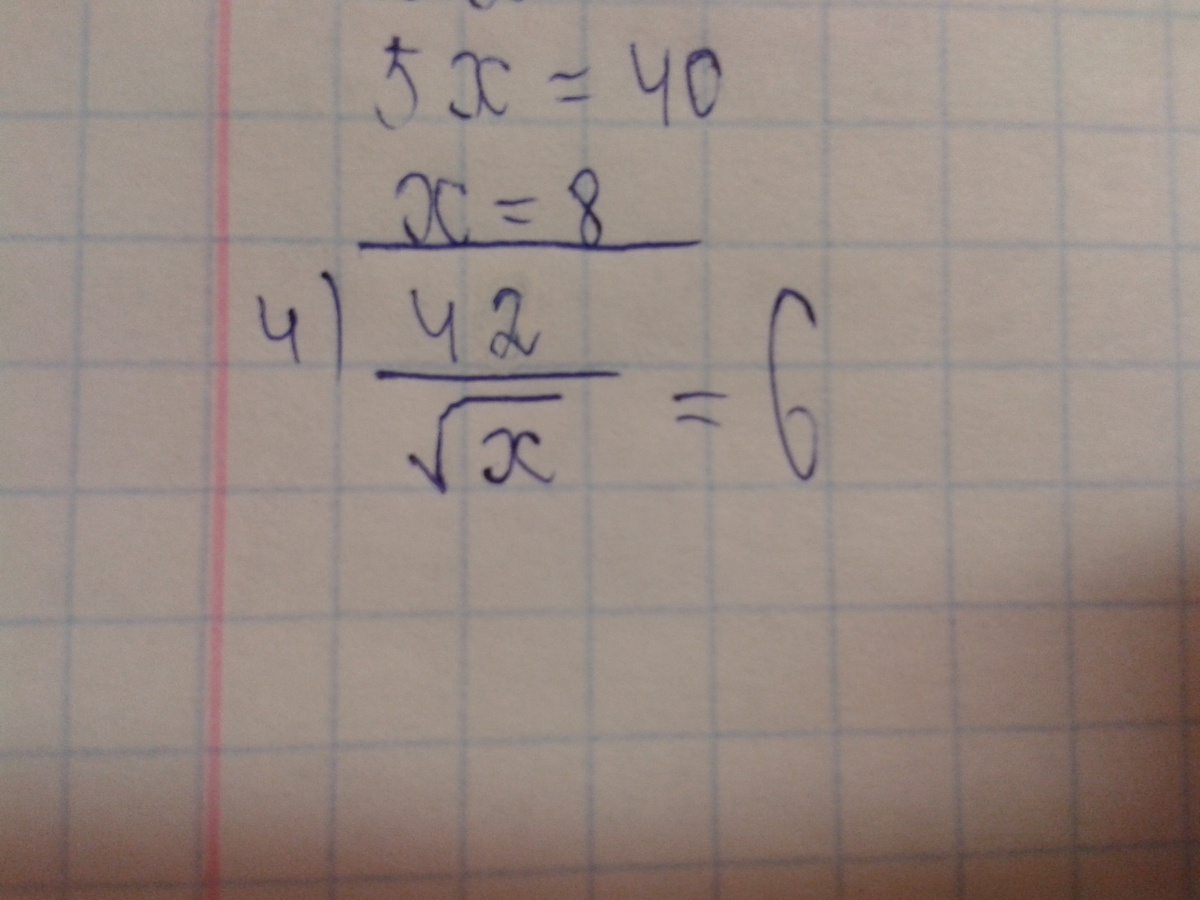 5x = 40
x = 8
4) 42
√x = 6